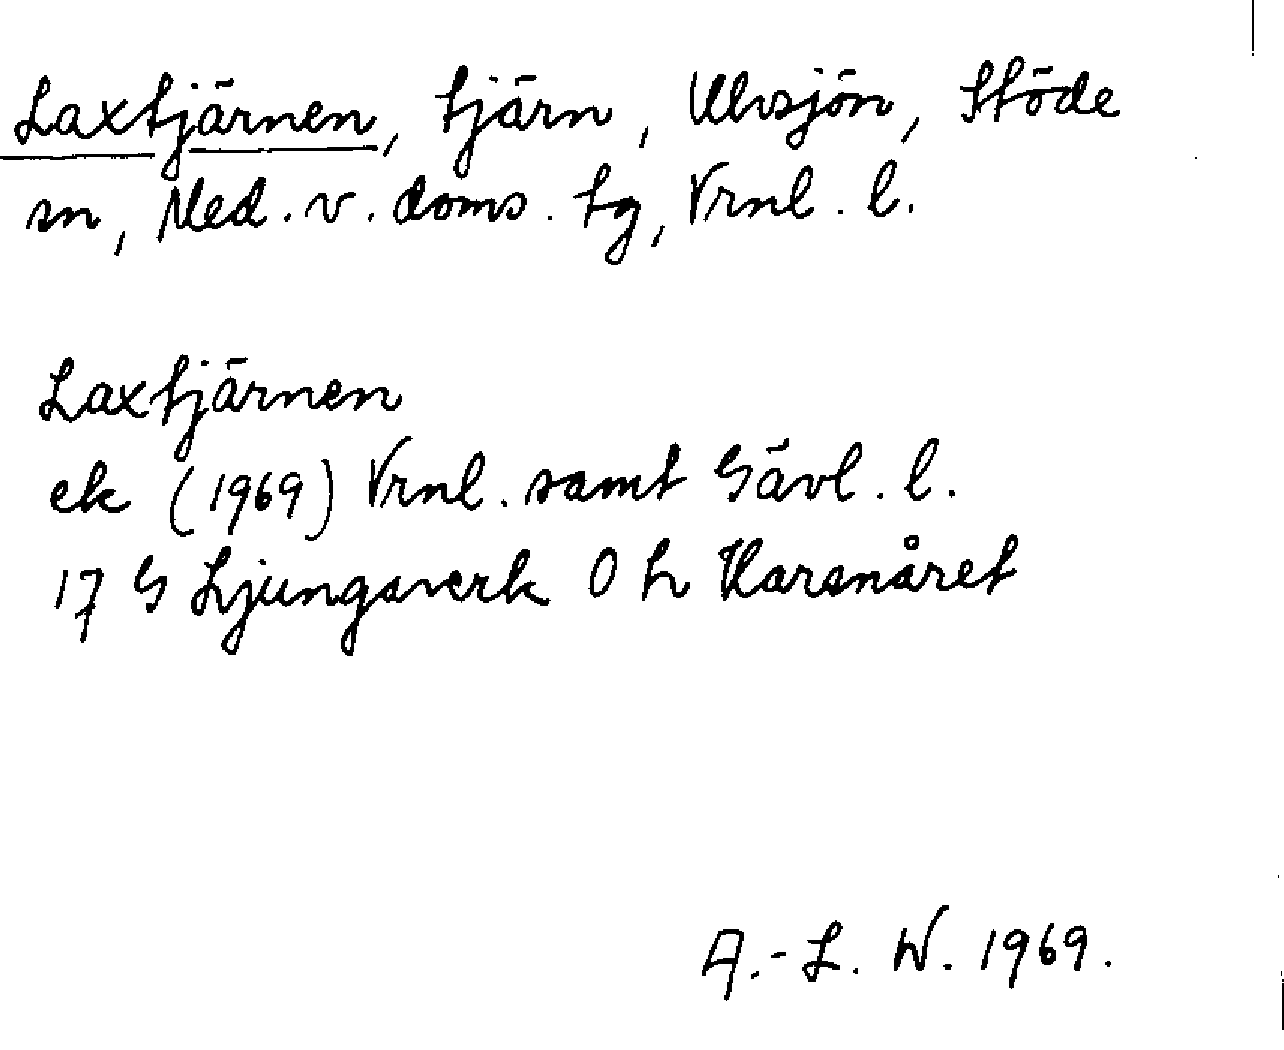 Laxtjärnen, tjärn, Ulvsjön, Stöde
sn, Med. v. doms. tg, Vrnl. l.
Laxtjärnen
ek (1969) Vrnl. samt Gävl. l.
17 G Ljungaverk 0 h Harsnåret
A.-L. W. 1969.